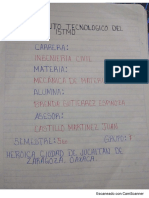 TECNOLOGICO DEL
ISTMO
CARRERA:
INGENIERIA CIVIL
MATERIA:
MECANICA DE MATERIALES
ALUMNA:
MIRANDA GUTIERREZ
ASESOR:
CASTILLO MARTINEZ
SEMESTRE:
GRUPO:
HEROICA CIUDAD DE JUCHITAN DE
ZARAGOZA, OAXACA
Escaneado con CamScanner